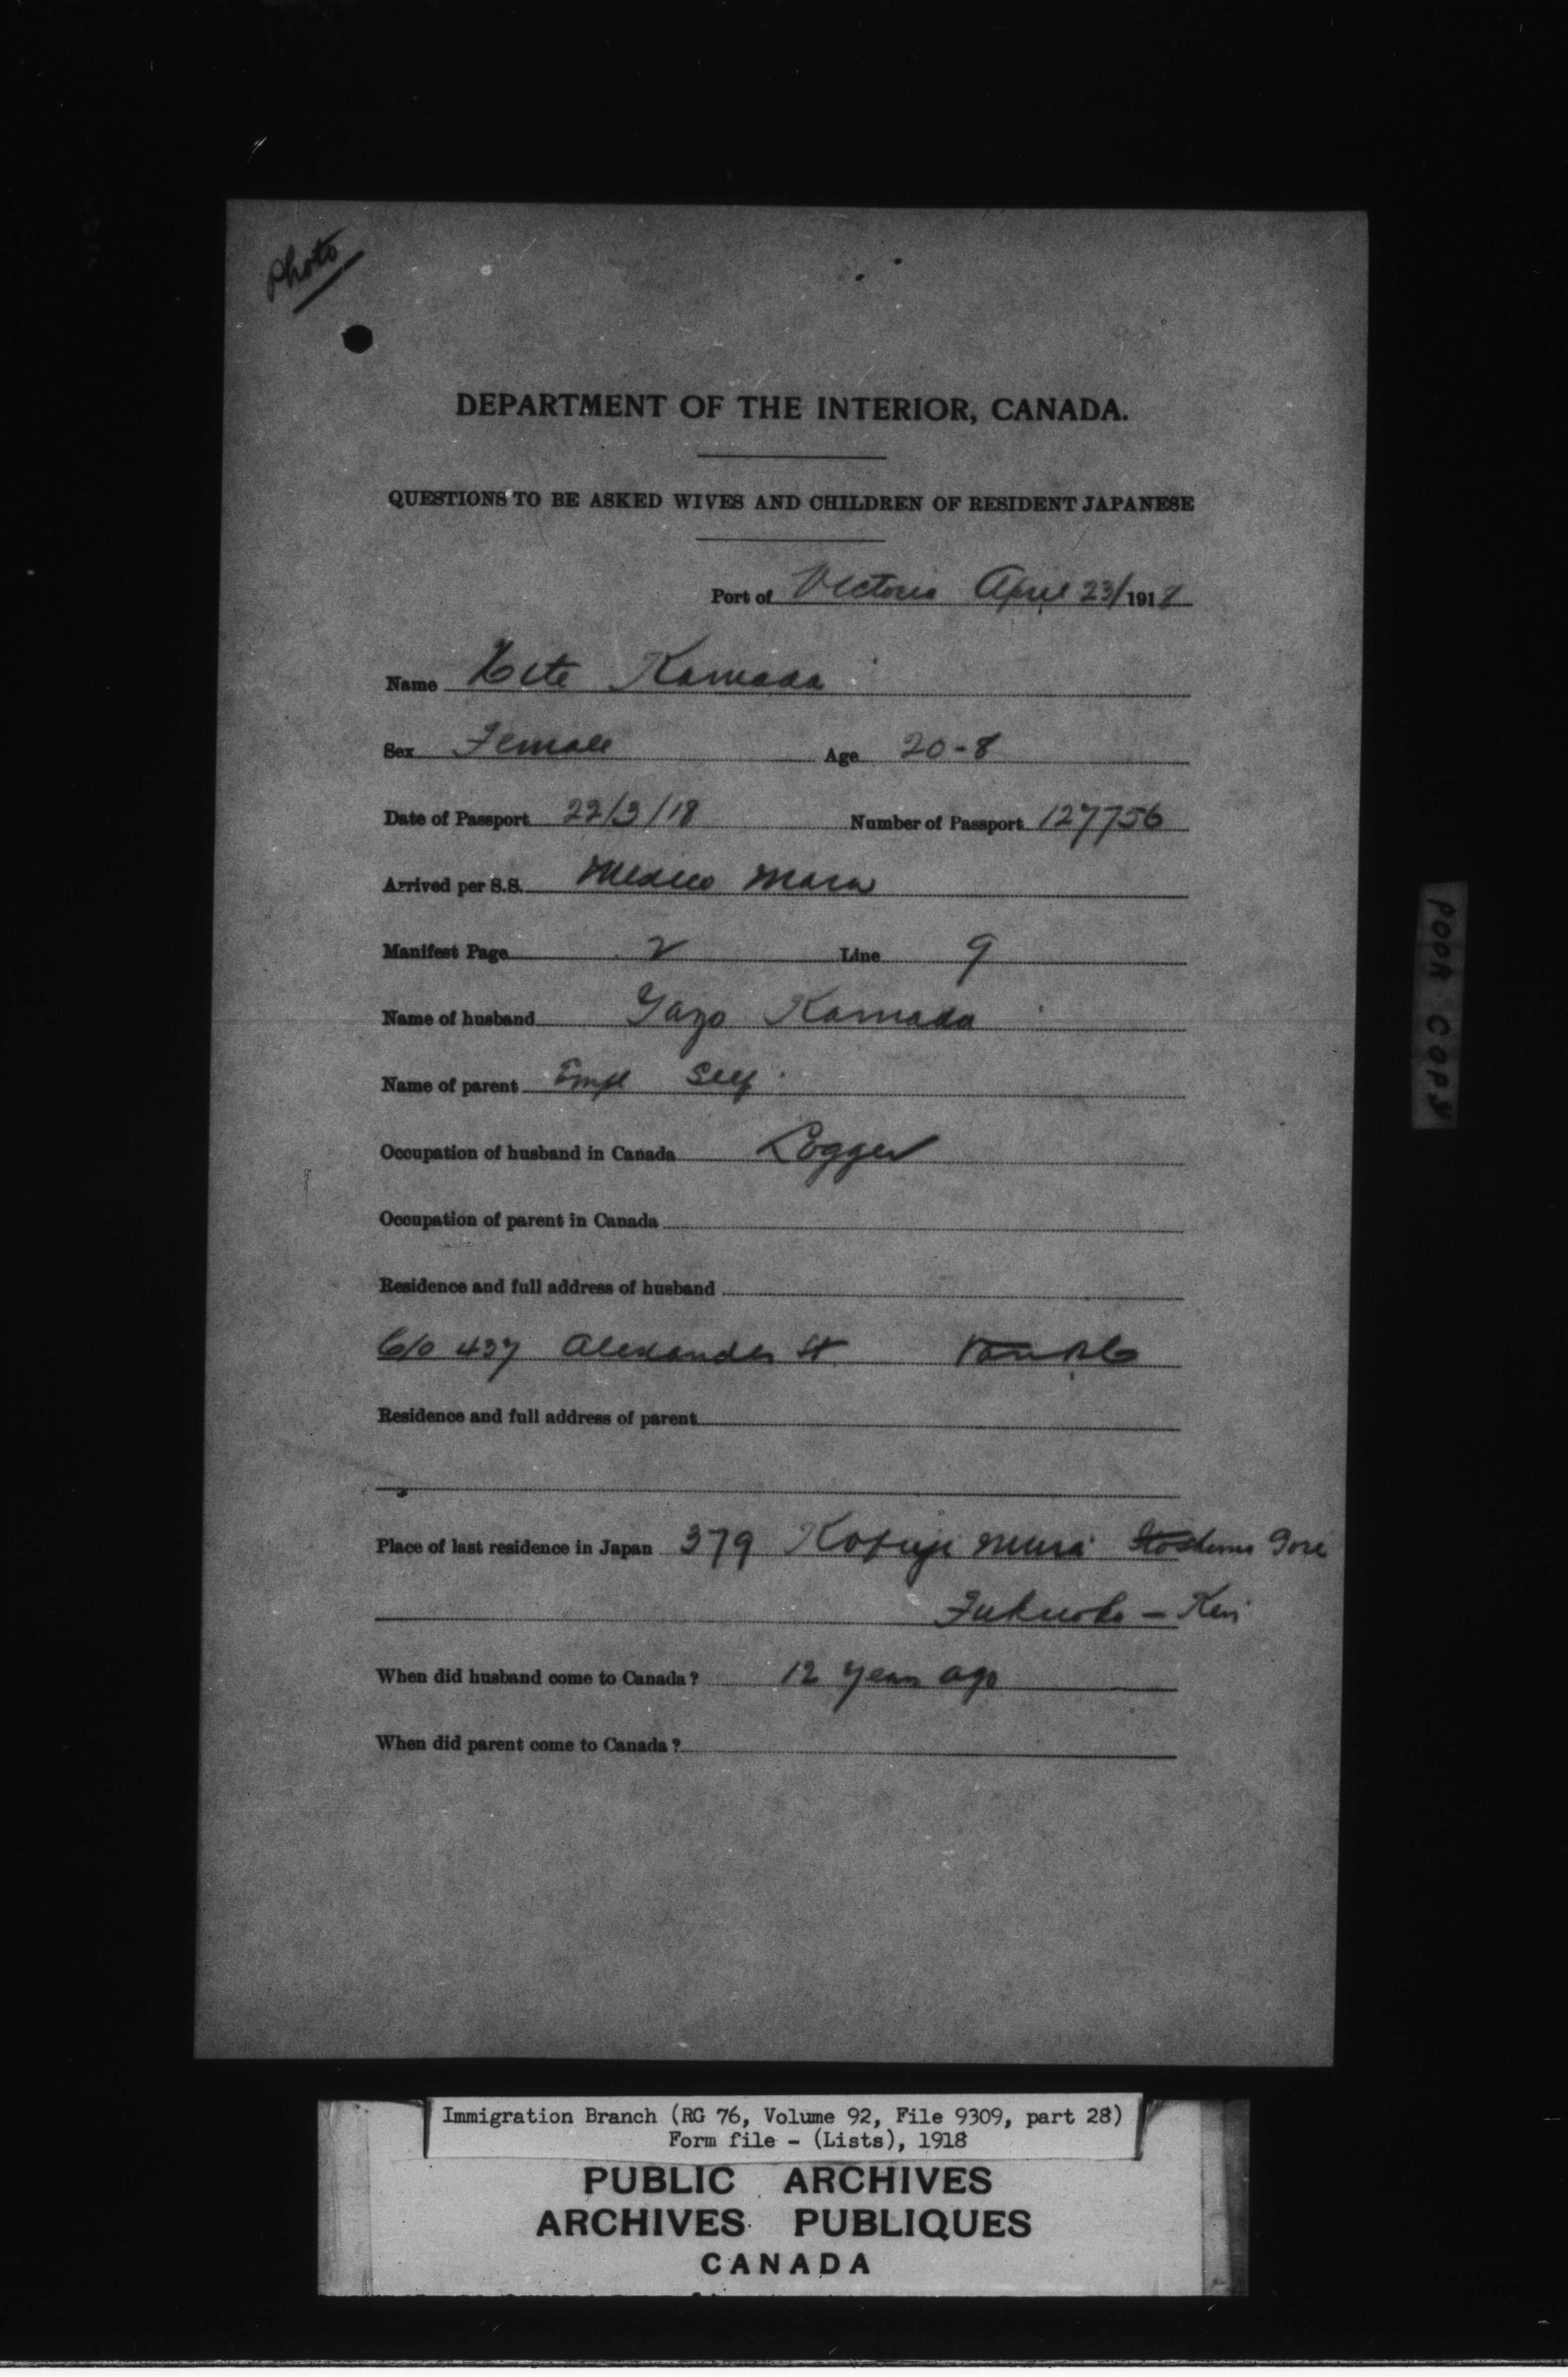 Photo
DEPARTMENT OF THE INTERIOR, CANADA.
QUESTIONS TO BE ASKED WIVES AND CHILDREN OF RESIDENT JAPANESE
Port of Victoria April 23/1918
Name Kamada
Sex Female Age 20-8
Date of Passport 22/3/18 Number of Passport 127756
Arrived per S.S. Mexico Maru
Manifest Page 2 Line 9
Name of husband Yazo Kamada
Name of parent Empl Self
Occupation of husband in Canada Logger
Occupation of parent in Canada
Residence and full address of husband
C/o 437 Alexander St. Van BC
Residence and full address of parent
Place of last residence in Japan 379 Mura Gori
Fukuoka - Ken
When did husband come to Canada? 12 years ago
When did parent come to Canada?
POOR COPY
Immigration Branch (RG 76, Volume 92, File 9309, part 28)
Form file - (Lists), 1918
PUBLIC ARCHIVES
ARCHIVES PUBLIQUES
CANADA